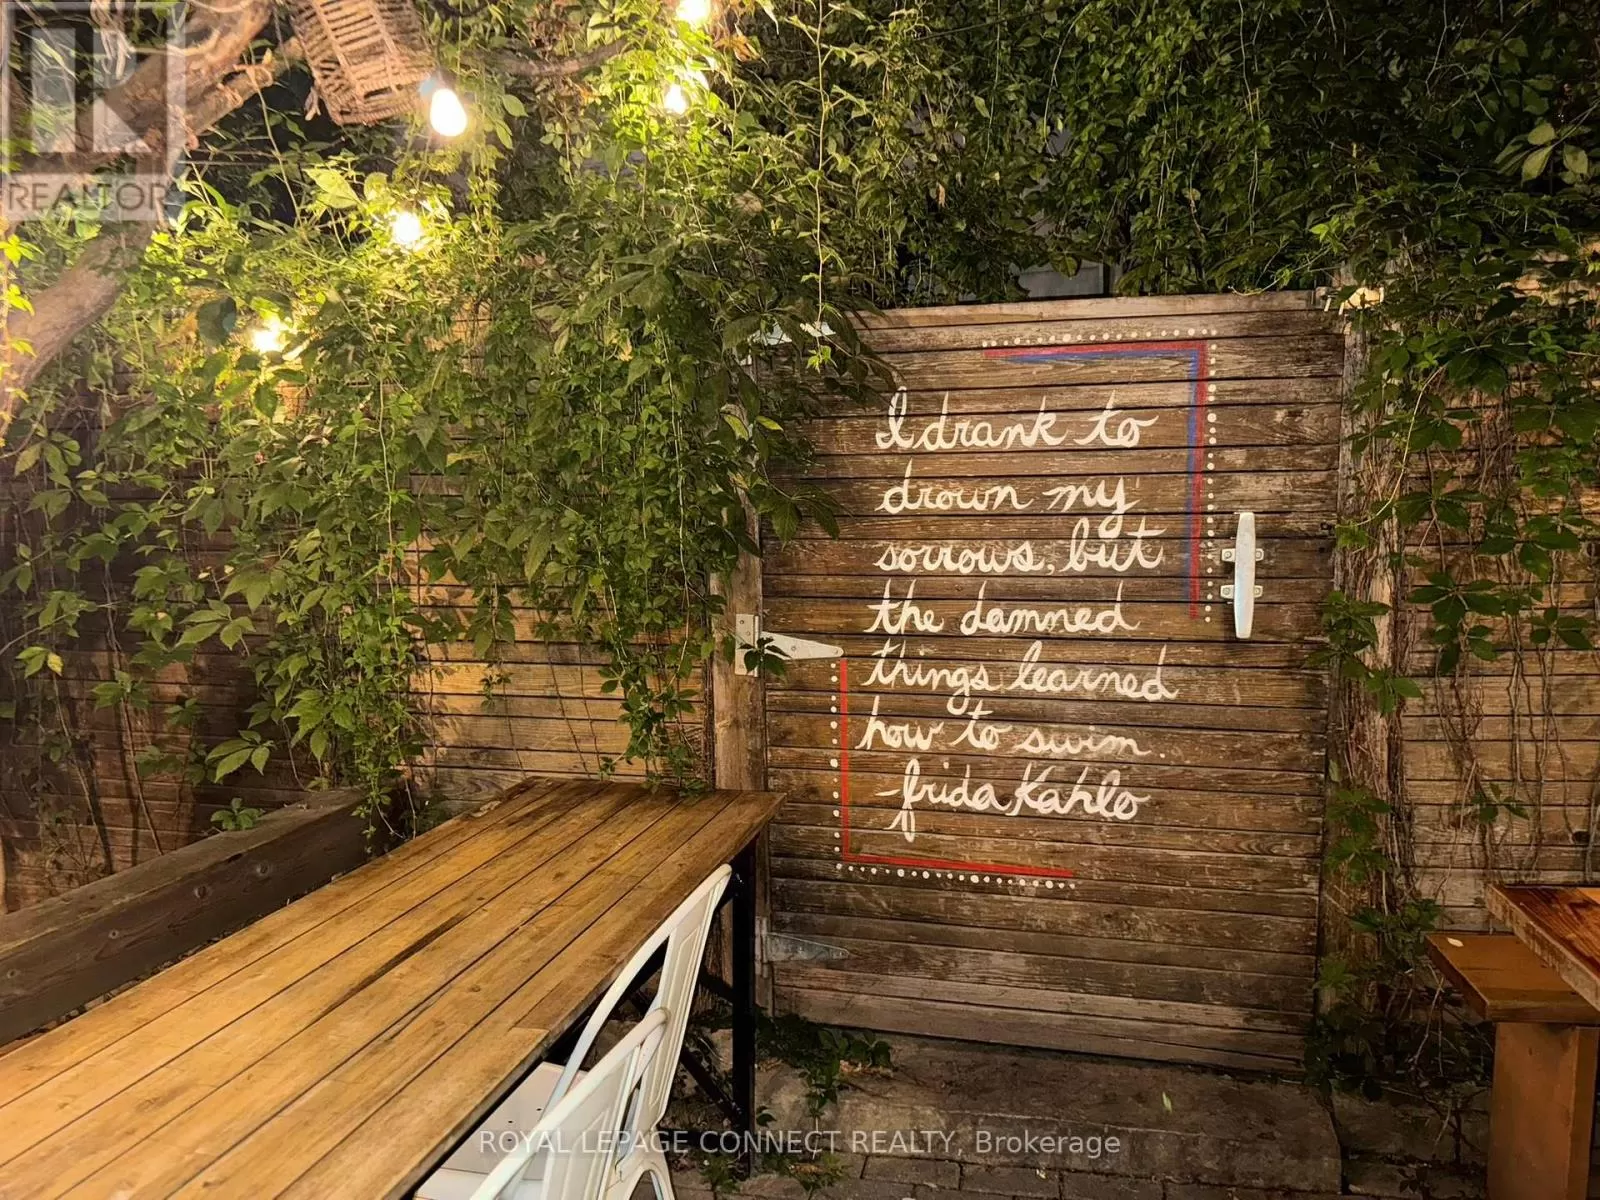 REALTOR
I drank to
drown my
sorrows, but
the damned
things learned
how to swim.
-frida Kahlo
ROYAL LEPAGE CONNECT REALTY, Brokerage